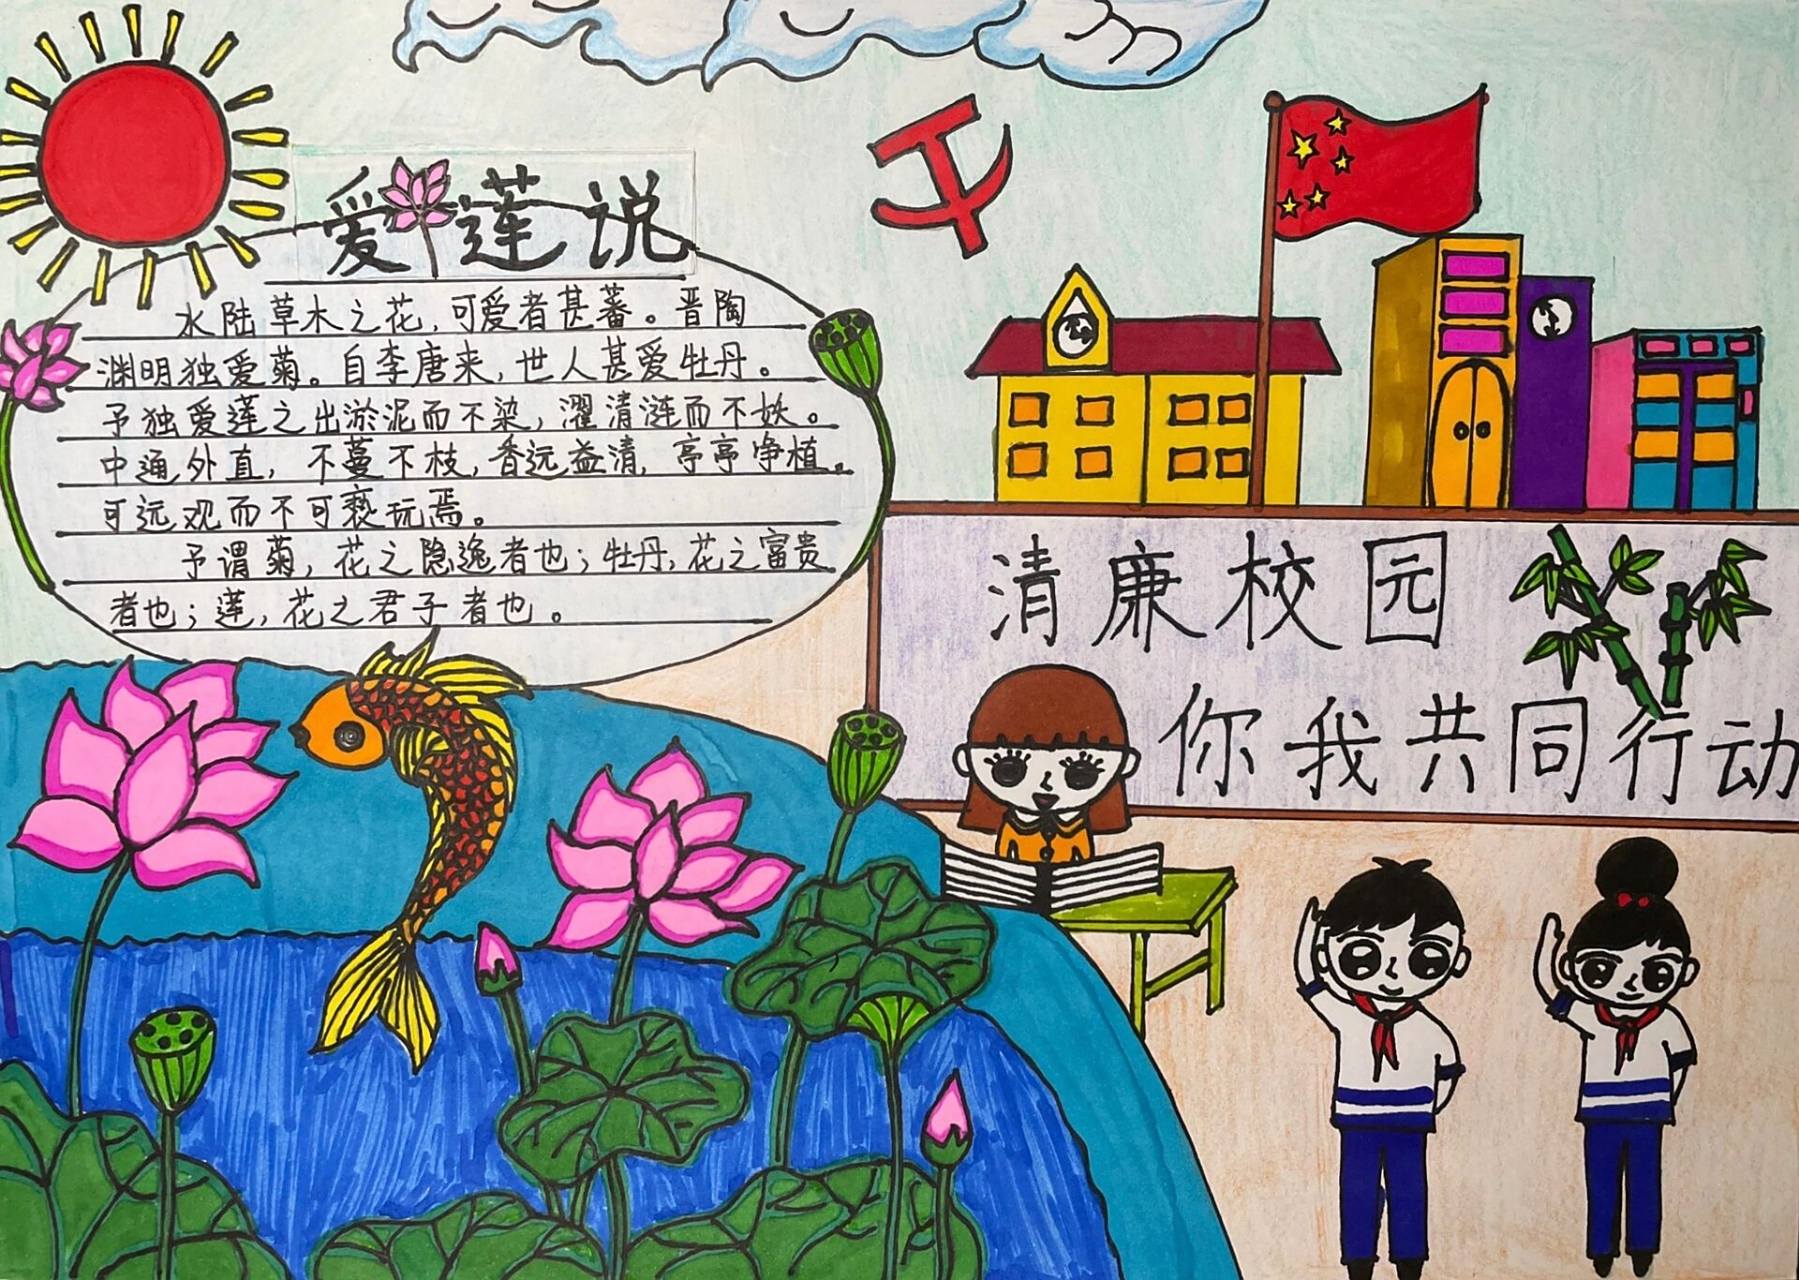 爱莲说
水陆草木之花，可爱者甚蕃。晋陶
渊明独爱菊。自李唐来，世人甚爱牡丹。
予独爱莲之出淤泥而不染，濯清涟而不妖。
中通外直，不蔓不枝，香远益清，亭亭净植，
可远观而不可亵玩焉。
予谓菊，花之隐逸者也；牡丹，花之富贵
者也；莲，花之君子者也。
清廉校园
你我共同行动